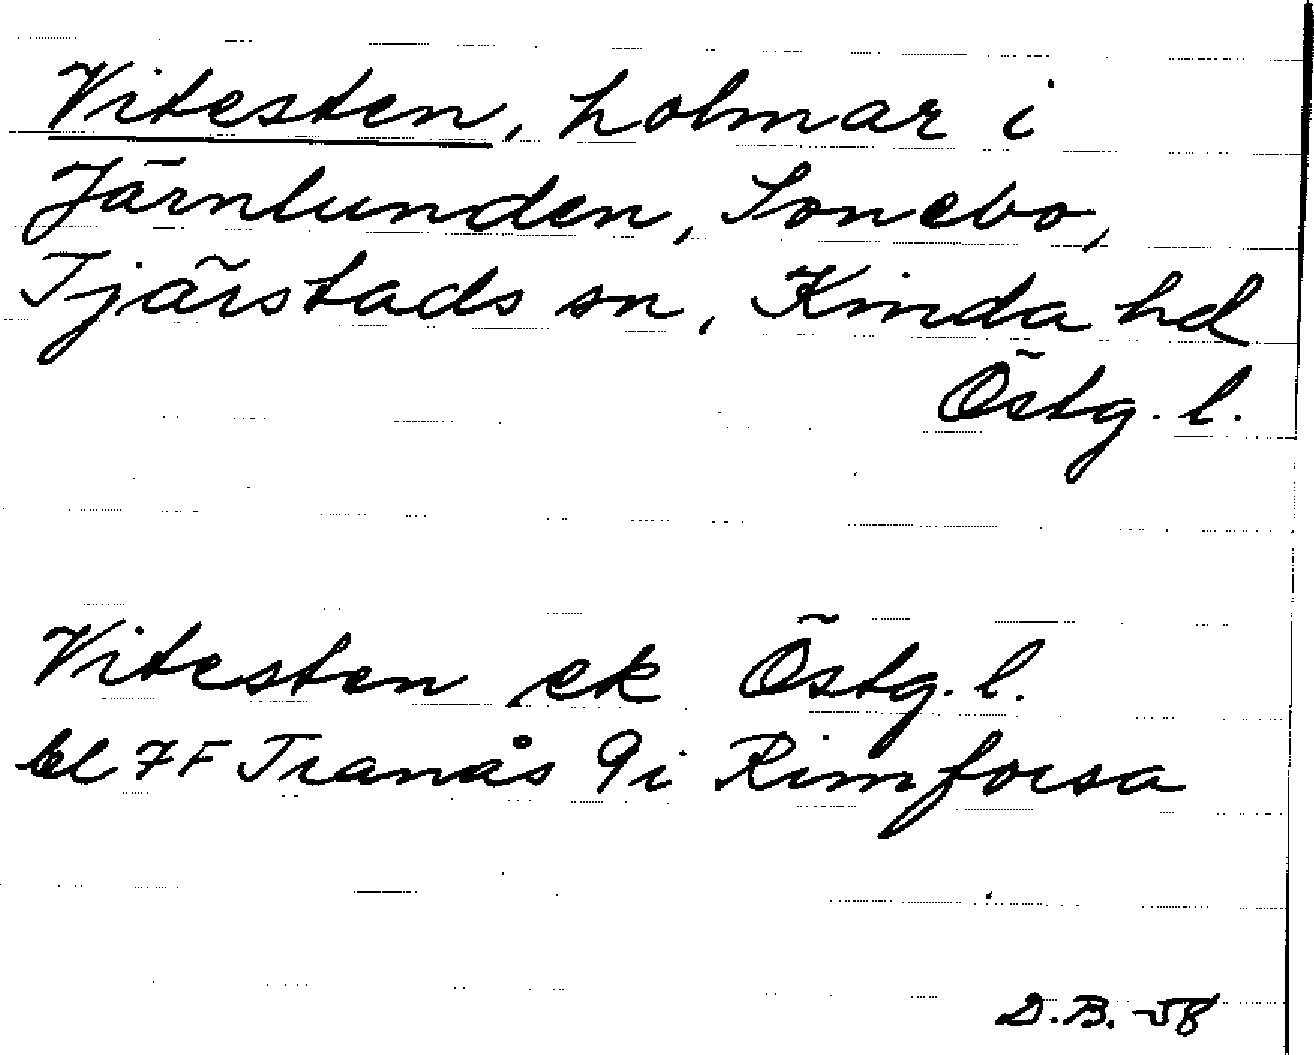 Vitesten, holmar i
Järnlunden, Sonebo,
Tjärstads sn, Kinda hd
Östg. l.
Vitesten ek Östg. l.
bl 7F Tranås 9i Rimforsa
D.B. -58